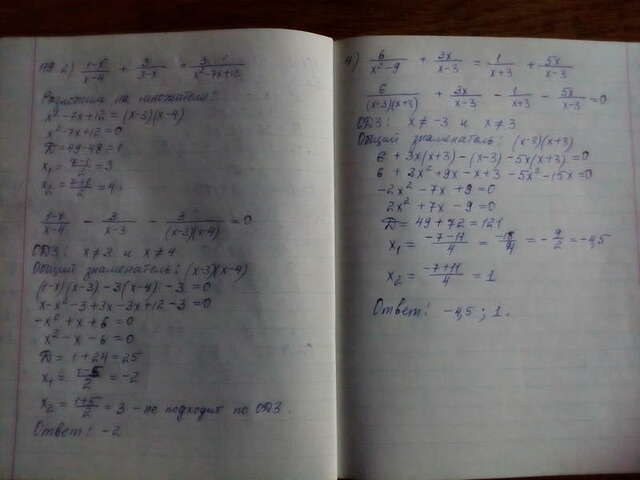 179 2) (1-x)/(x-4) + 3/(3-x) + 3/(x²-7x+12)
Разложим на множители:
x² - 7x + 12 = (x-3)(x-4)
x² - 7x + 12 = 0
D = 49 - 48 = 1
x₁ = (7-1)/2 = 3
x₂ = (7+1)/2 = 4
(1-x)/(x-4) - 3/(x-3) - 3/((x-3)(x-4)) = 0
ОДЗ: x ≠ 3 и x ≠ 4
Общий знаменатель: (x-3)(x-4)
(1-x)(x-3) - 3(x-4) - 3 = 0
x - x² - 3 + 3x - 3x + 12 - 3 = 0
-x² + x + 6 = 0
x² - x - 6 = 0
D = 1 + 24 = 25
x₁ = (1-5)/2 = -2
x₂ = (1+5)/2 = 3 - не подходит по ОДЗ.
Ответ: -2
4) 6/(x²-9) + 3x/(x-3) = 1/(x+3) + 5x/(x-3)
6/((x-3)(x+3)) + 3x/(x-3) - 1/(x+3) - 5x/(x-3) = 0
ОДЗ: x ≠ -3 и x ≠ 3
Общий знаменатель: (x-3)(x+3)
6 + 3x(x+3) - (x-3) - 5x(x+3) = 0
6 + 3x² + 9x - x + 3 - 5x² - 15x = 0
-2x² - 7x + 9 = 0
2x² + 7x - 9 = 0
D = 49 + 72 = 121
x₁ = (-7-11)/4 = -18/4 = -9/2 = -4,5
x₂ = (-7+11)/4 = 1
Ответ: -4,5; 1.